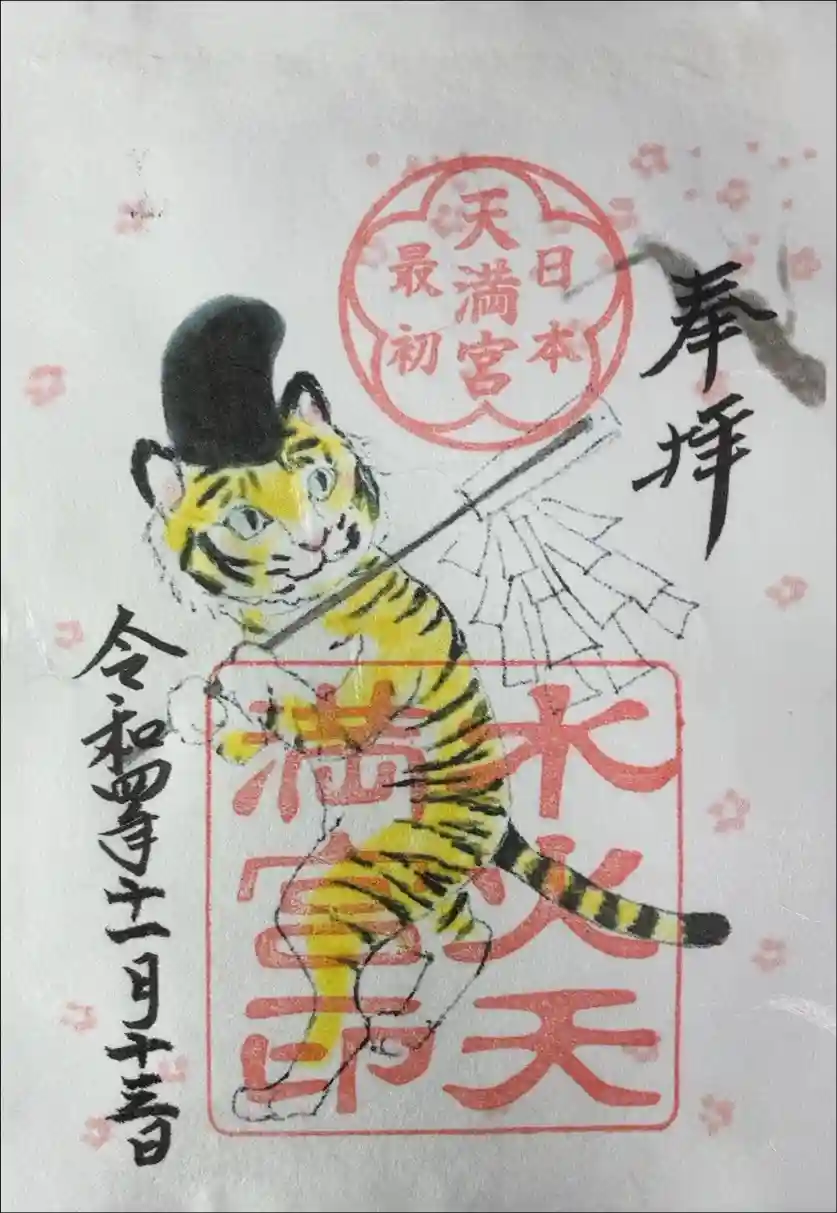 奉拝
日本
天満宮
最初
水火天
満宮印
令和四年十一月十三日